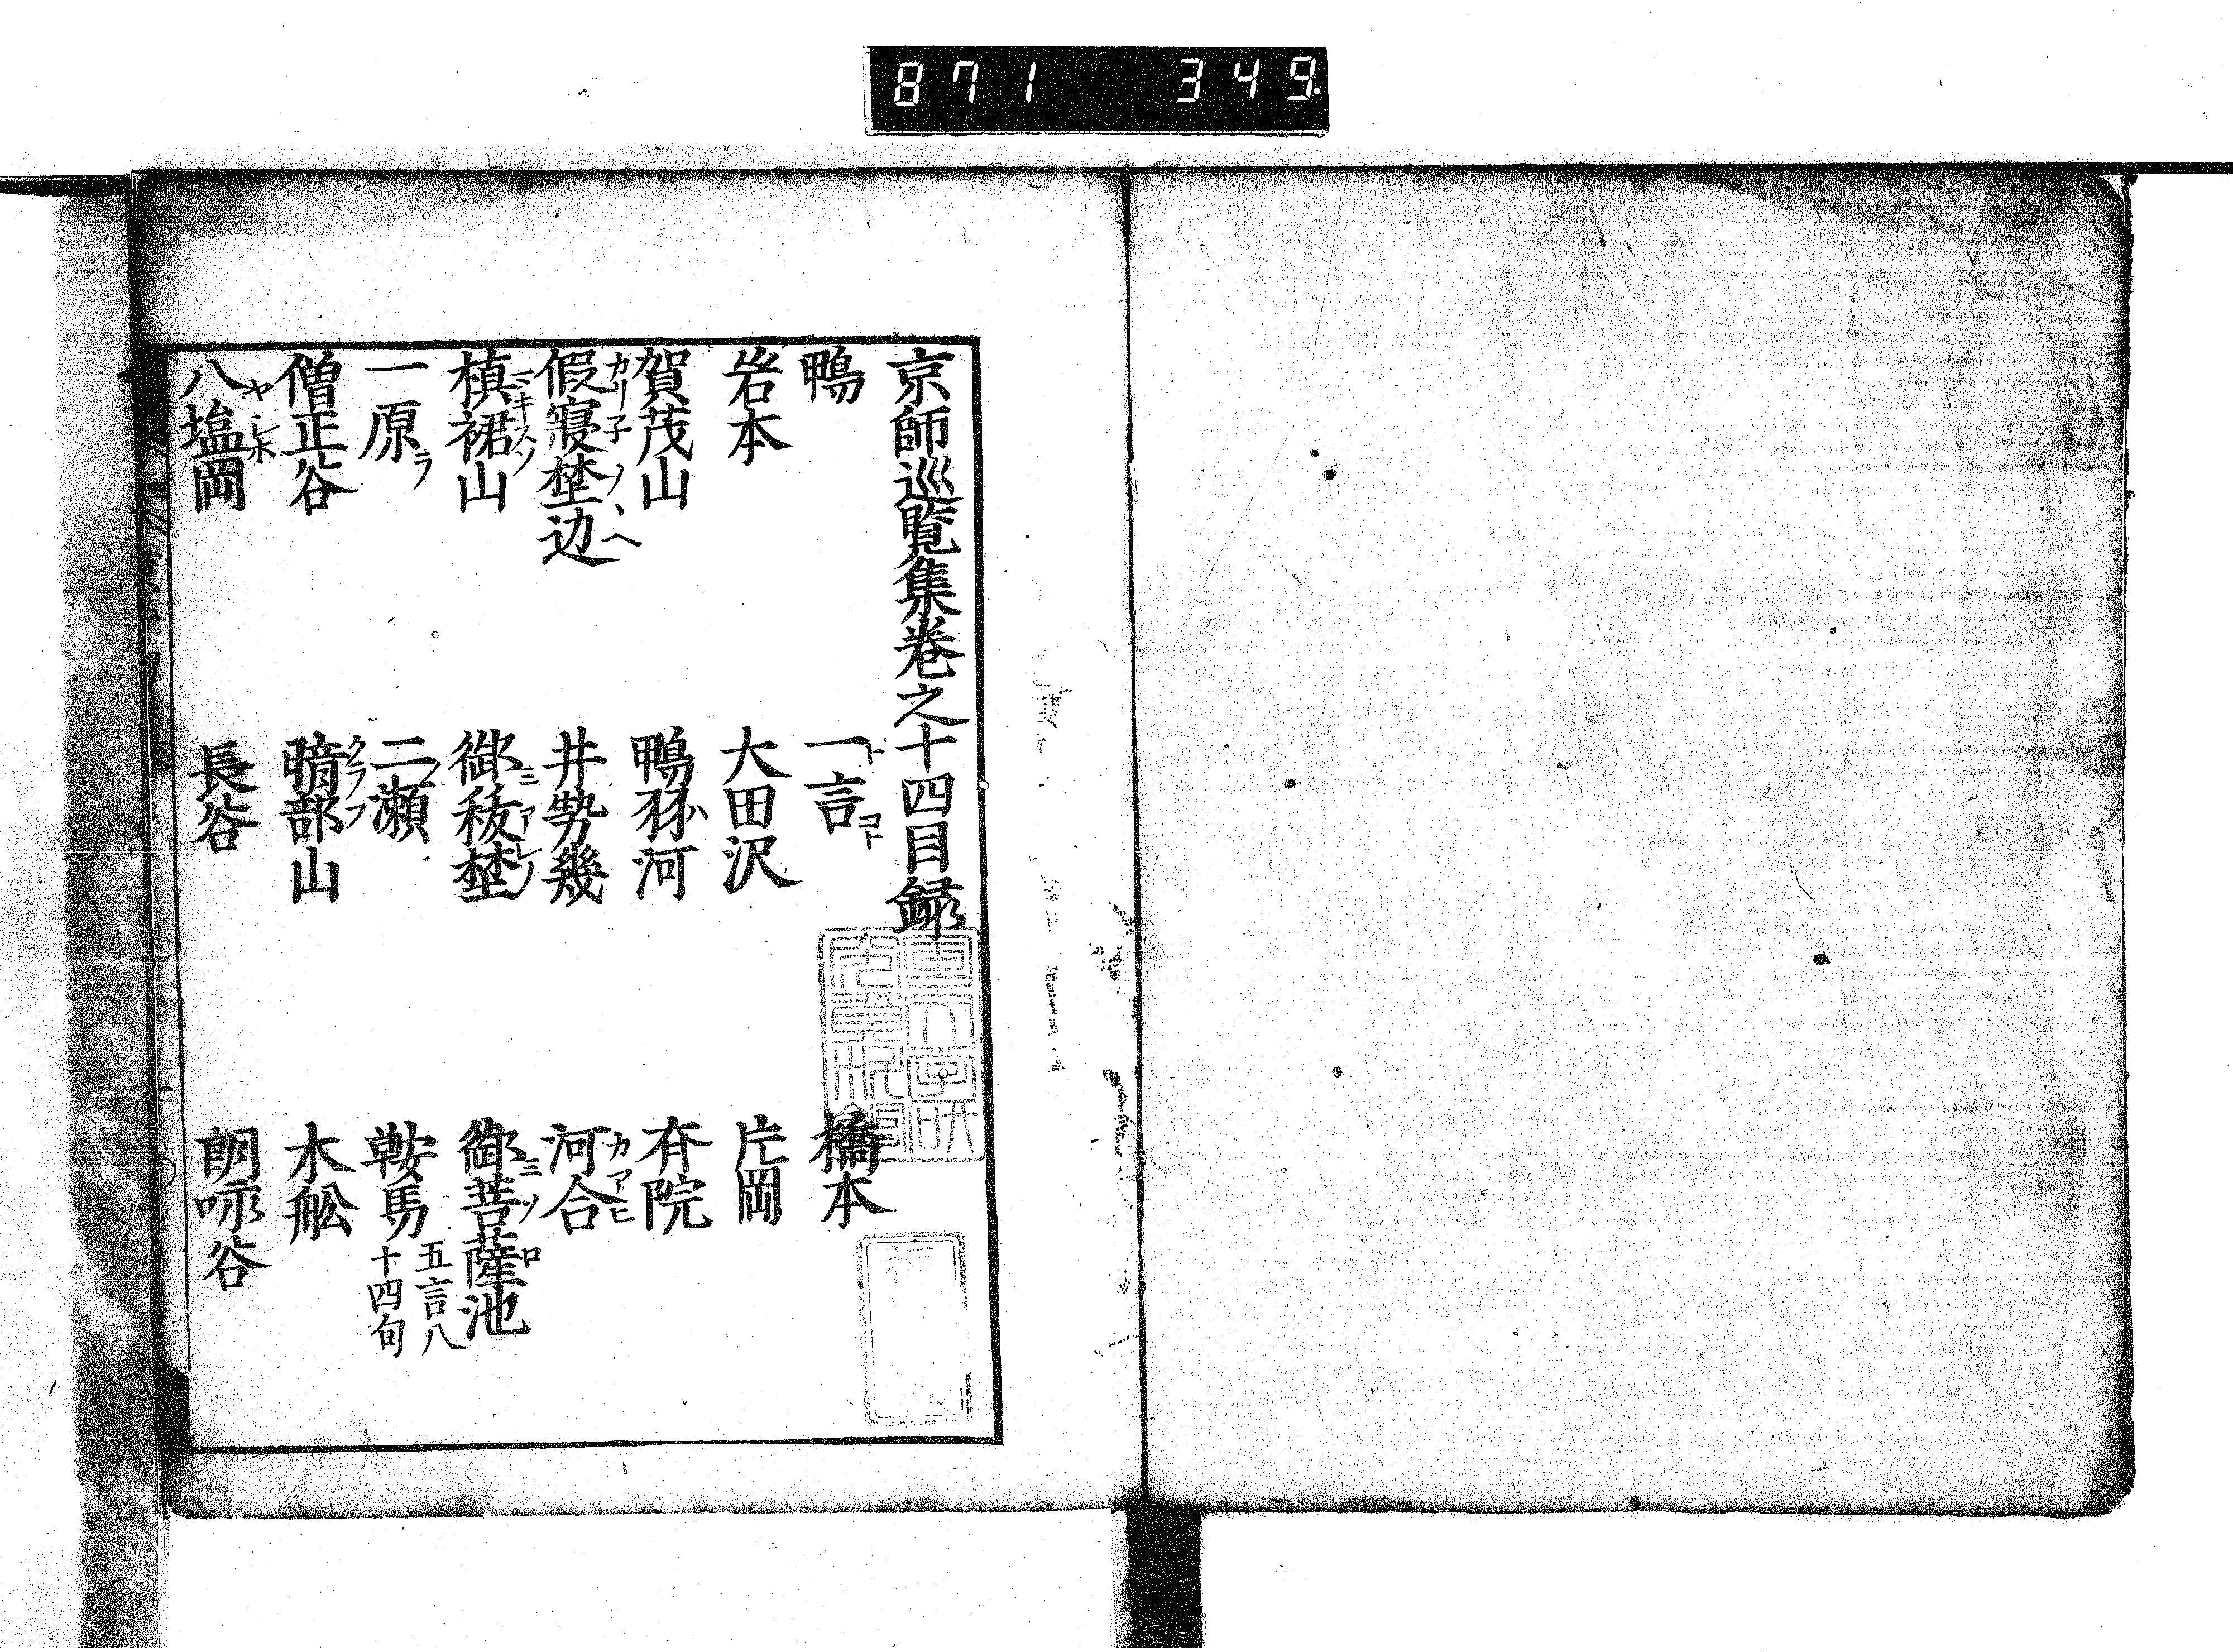 871 349
京師巡覧集卷之十四目録
鴨 一言 橋本
岩本 大田沢 片岡
賀茂山 鴨羽河 斎院
假寢埜辺 井勢幾 河合
槙裙山 御秡埜 御菩薩池
一原 二瀬 鞍馬 五言八十四句
僧正谷 暗部山 木舩
八塩岡 長谷 朗咏谷